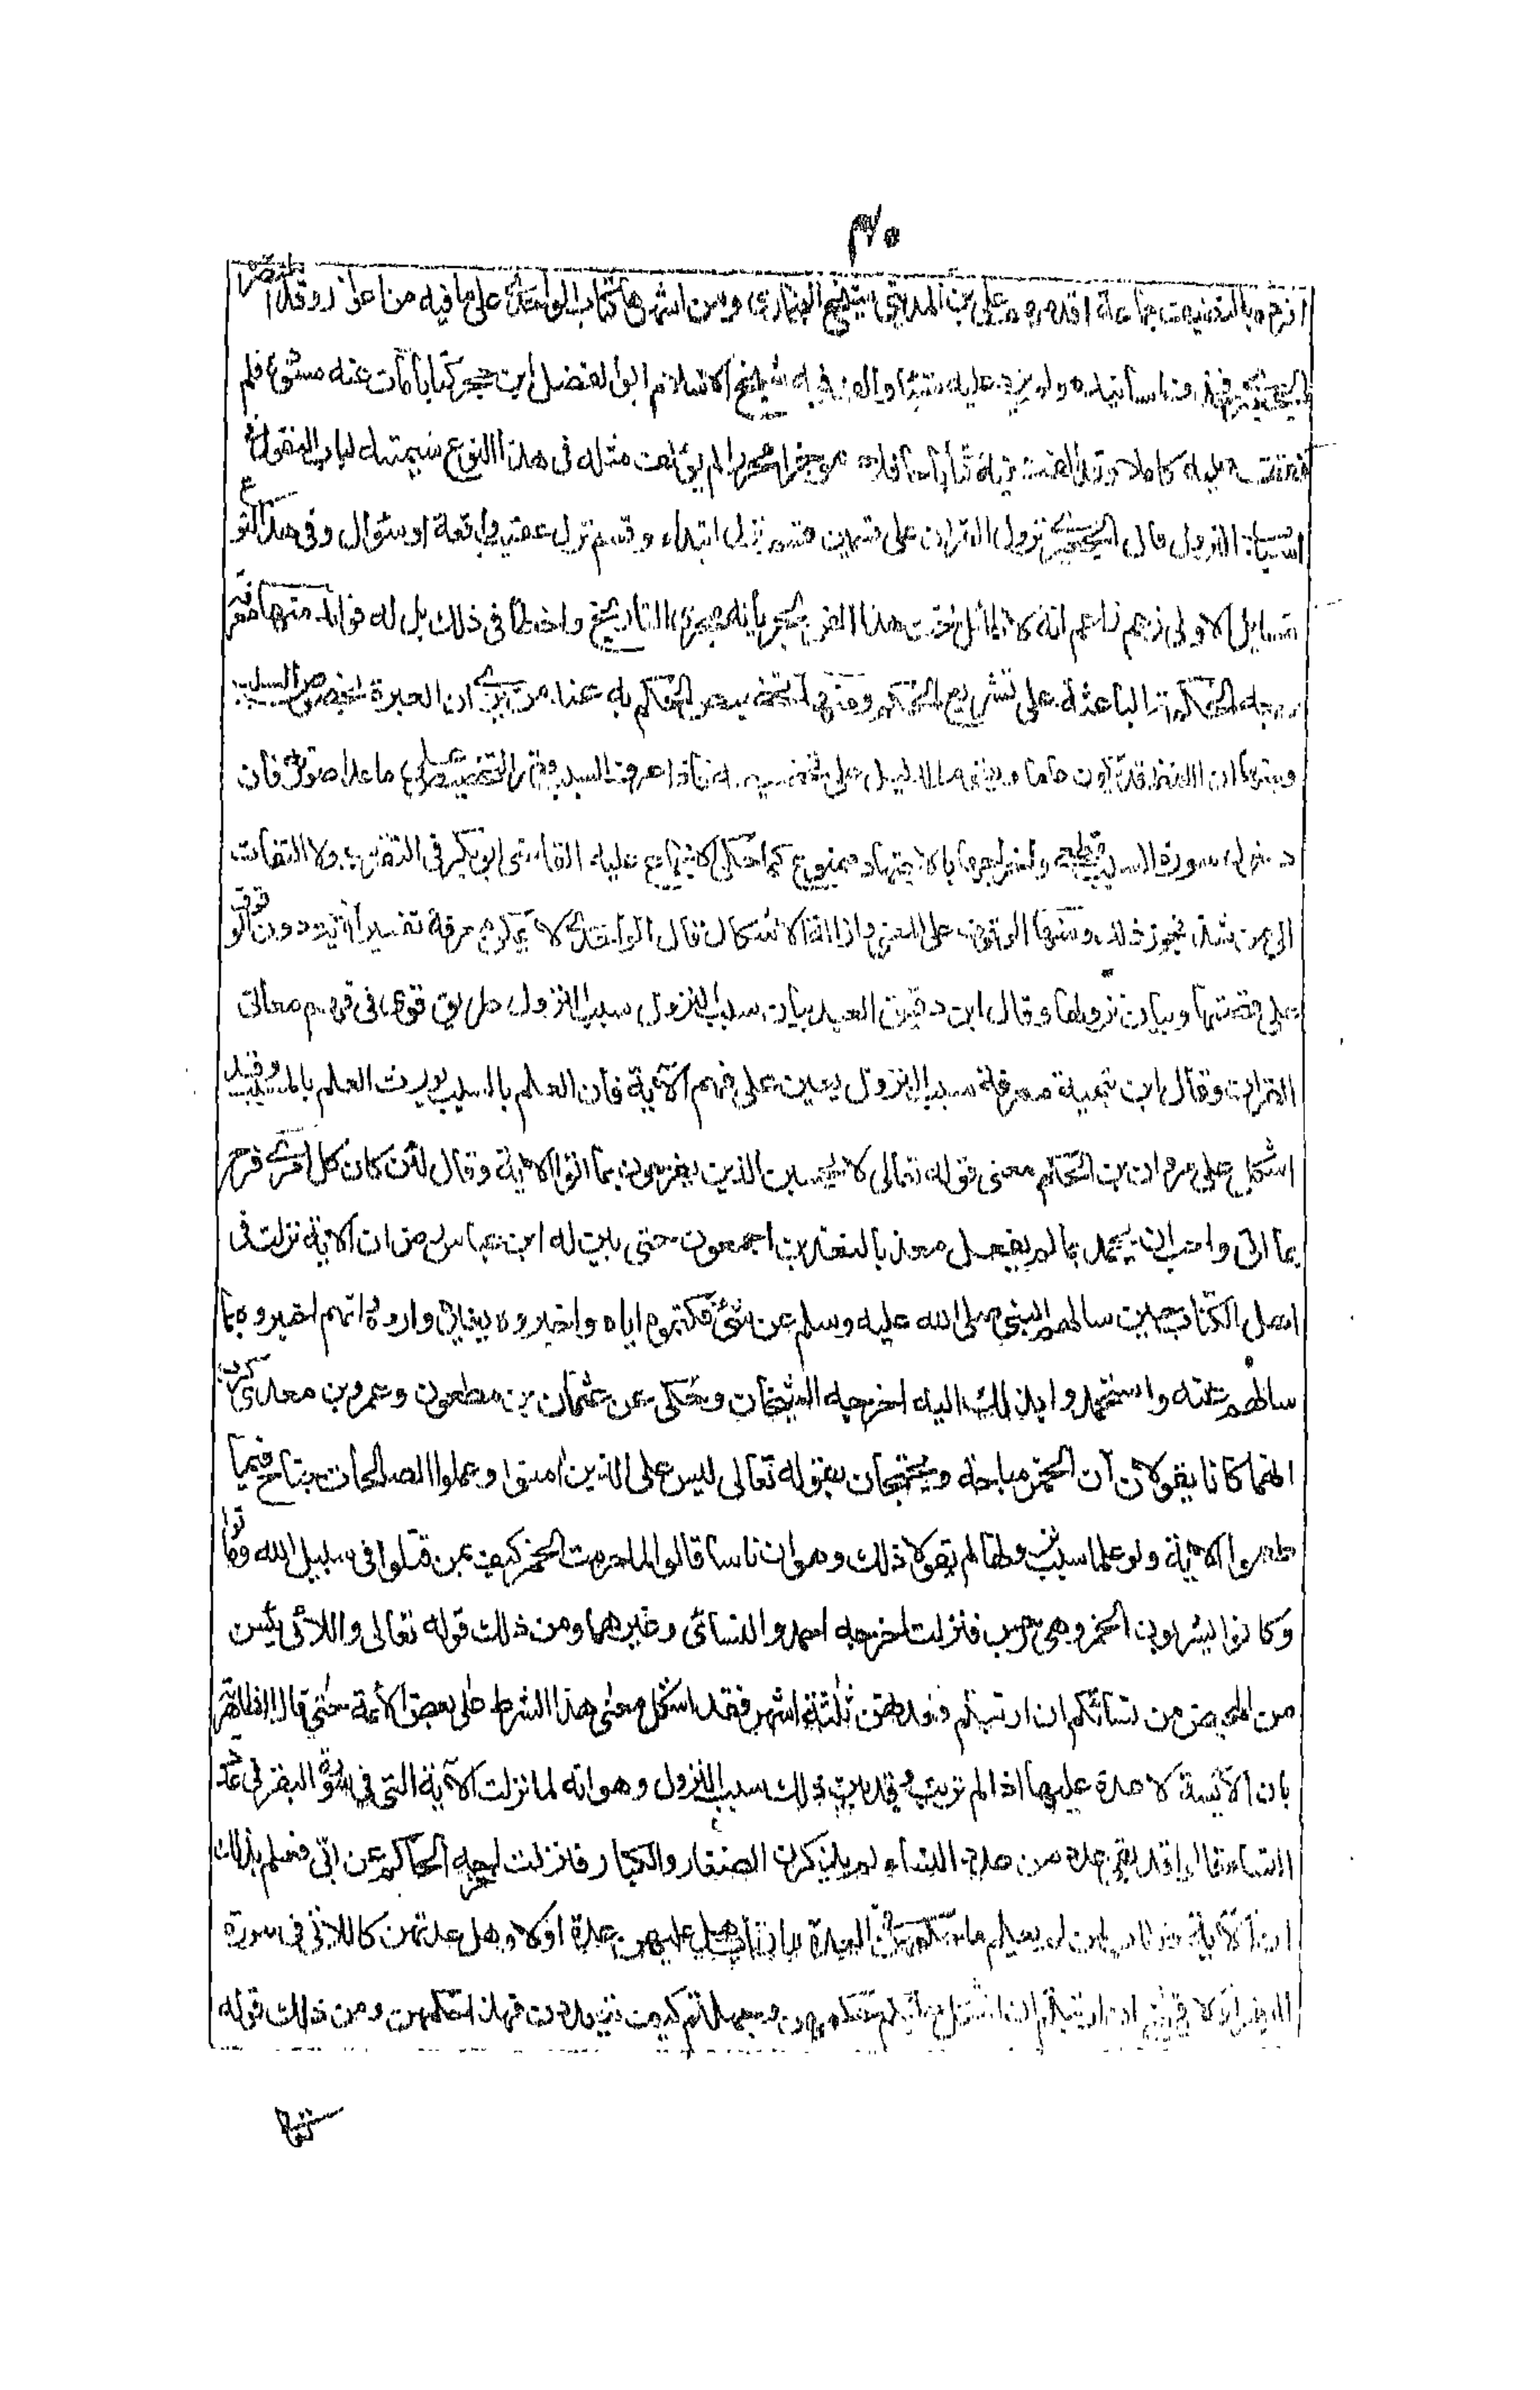 افرده بالتصنيف جماعة اقدمهم على بن المديني شيخ البخارى ومن اشهرها كتاب الواحدى على ما فيه من اعواز وقد اختصره
الجعبرى فحذف اسانيده ولم يزد عليه شيئا والف فيه شيخ الاسلام ابو الفضل ابن حجر كتابا مات عنه مسودة فلم
نقف عليه كاملا وقد الفت فيه كتابا حافلا موجزا محررا لم يؤلف مثله فى هذا النوع سميته لباب النقول فى
اسباب النزول قال الجعبرى نزول القران على قسمين قسم نزل ابتداء وقسم نزل عقيب واقعة او سؤال وفى هذا النوع
مسايل الاولى زعم زاعم انه لا طائل تحت هذا الفن لجريانه مجرى التاريخ واخطأ فى ذلك بل له فوائد منها معرفة
وجه الحكمة الباعثة على تشريع الحكم ومنها تخصيص الحكم به عند من يرى ان العبرة بخصوص السبب
ومنها ان اللفظ قد يكون عاما ويقوم الدليل على تخصيصه فاذا عرف السبب قصر التخصيص على ما عدا صورته فان
دخول سورة السبب قطعى واخراجها بالاجتهاد ممنوع كما حكى الاجماع عليه القاضى ابو بكر فى التقريب ولا التفات
الى من شذ فجوز ذلك ومنها الوقوف على المعنى وازالة الاشكال قال الواحدى لا يمكن معرفة تفسير الآية دون الوقوف
على قصتها وبيان نزولها وقال ابن دقيق العيد بيان سبب النزول سبب النزول طريق قوى فى فهم معانى
القران وقال ابن تيمية معرفة سبب النزول يعين على فهم الآية فان العلم بالسبب يورث العلم بالمسبب وقد
اشكل على مروان بن الحكم معنى قوله تعالى لا تحسبن الذين يفرحون بما اتوا الاية وقال لئن كان كل امرى فرح
بما اتى واحب ان يحمد بما لم يفعل معذبا لنعذبن اجمعون حتى بين له ابن عباس رض ان الاية نزلت فى
اهل الكتاب حين سالهم النبى صلى الله عليه وسلم عن شئ فكتموه اياه واخبروه بغيره واروه انهم اخبروه بما
سالهم عنه واستحمدوا بذلك اليه اخرجه الشيخان وحكى عن عثمان بن مظعون وعمرو بن معدى كرب
انهما كانا يقولان ان الخمر مباحة ويحتجان بقوله تعالى ليس على الذين امنوا وعملوا الصالحات جناح فيما
طعموا الاية ولو علما سبب نزولها لم يقولا ذلك وهو ان ناسا قالوا لما حرمت الخمر كيف بمن قتلوا فى سبيل الله وماتوا
وكانوا يشربون الخمر وهى رجس فنزلت اخرجه احمد والنسائى وغيرهما ومن ذلك قوله تعالى واللائى يئسن
من المحيض من نسائكم ان ارتبتم فعدتهن ثلثة اشهر فقد اشكل معنى هذا الشرط على بعض الأئمة حتى قال الظاهرية
بان الآئسة لا عدة عليها اذا لم ترتب وقد بين ذلك سبب النزول وهو انه لما نزلت الآية التى فى سورة البقر فى عدد
النساء قالوا قد بقى عدد من عدد النساء لم يذكرن الصغار والكبار فنزلت اخرجه الحاكم عن ابى فعلم بذلك
ان الآية خطاب لمن لم يعلم ما حكمهن فى العدة وارتاب هل عليهن عدة او لا وهل عدتهن كاللاتى فى سورة
البقرة او لا فمعنى ان ارتبتم ان اشكل عليكم حكمهن وجهلتم كيف تعتدون فهذا حكمهن ومن ذلك قوله